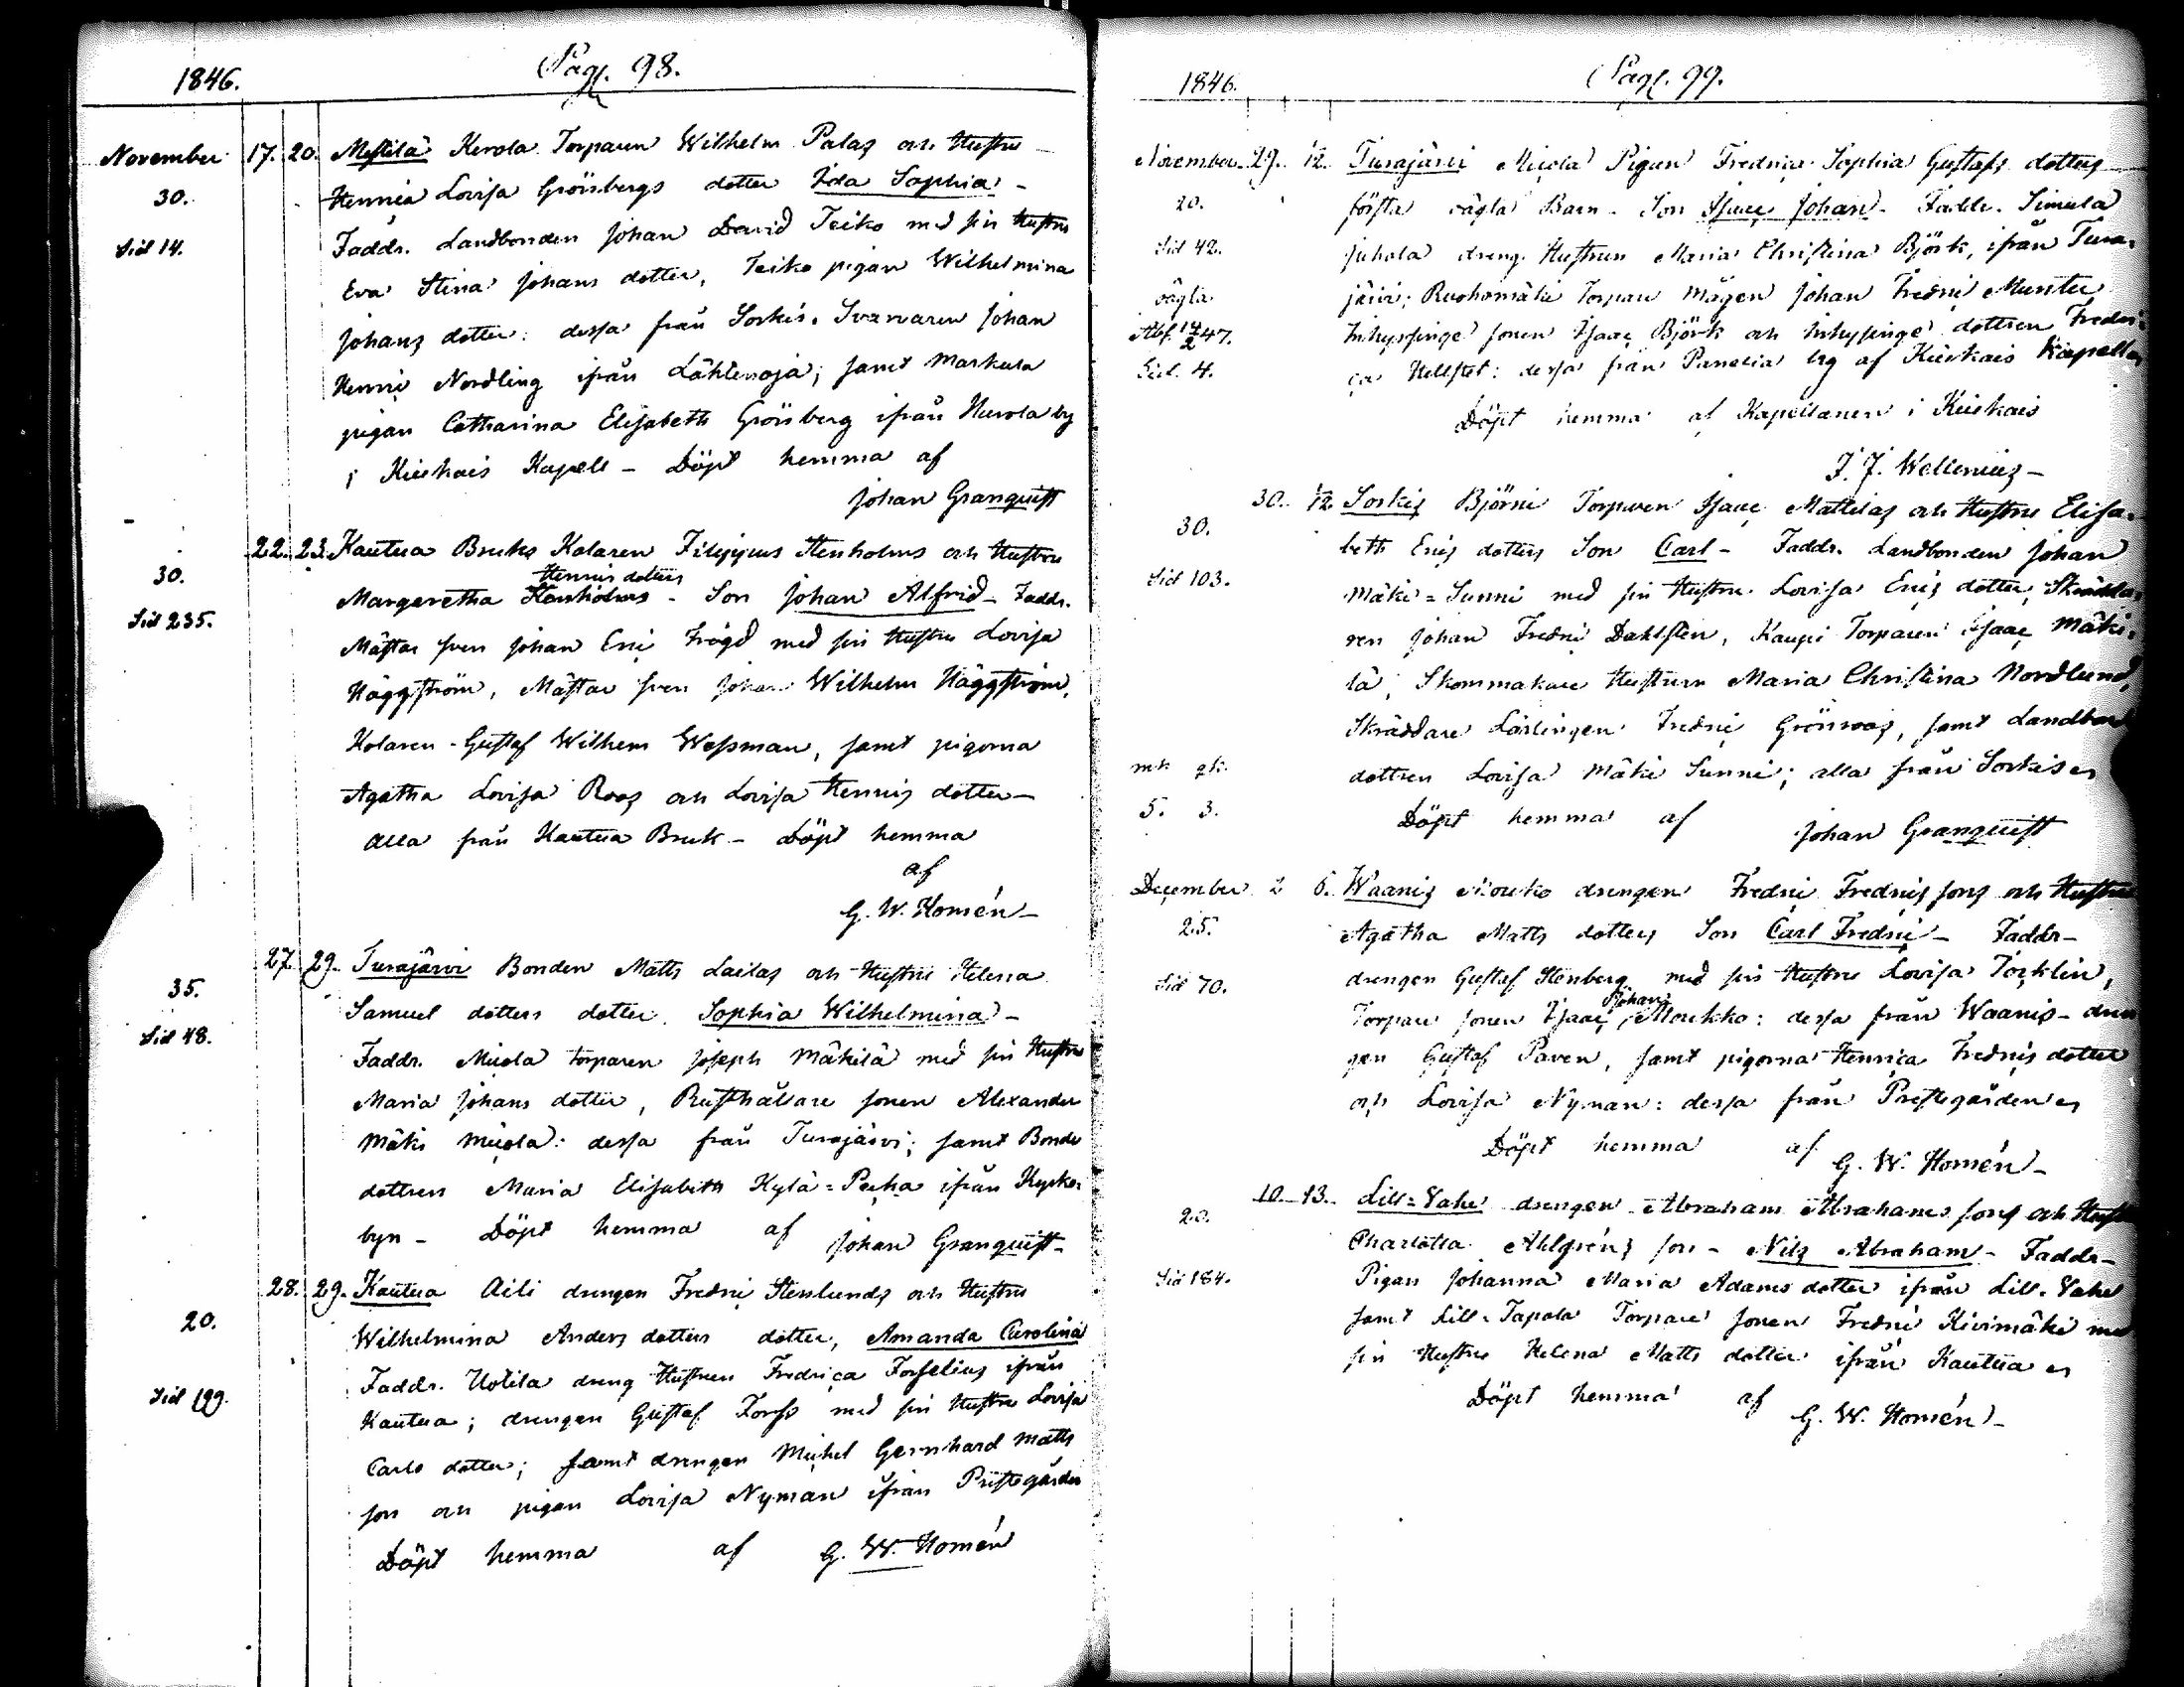 1846. Pag. 98.
November 17. 20. Mestilä Kerola Torparen Wilhelm Palas och Hustru
30. Henrica Lovisa Grönbergs dotter Ida Sophia -
Faddr. Landbonden Johan David Teiko med sin Hustru
Sid 14.
Eva Stina Johans dotter, Teiko pigan Wilhelmina
Johans dotter: dessa från Sorkis. Svarvaren Johan
Henric Nordling ifrån Lähtenoja; samt Markula
pigan Catharina Elisabeth Grönberg ifrån Hurola by
i Kiukais Kapell - Döpt hemma af
Johan Granquist
22. 23. Kautua Bruks Kolaren Filippus Stenholms och Hustru
30. Henrics dotters
Margaretha - Son Johan Alfrid - Faddr.
Sid 235.
Mästar sven Johan Eric Frögd med sin Hustru Lovisa
Häggström, Mästar sven Johan Wilhelm Häggström,
Kolaren Gustaf Wilhem Wessman, samt pigorna
Agatha Lovisa Roos och Lovisa Henrics dotter -
alla från Kautua Bruk - Döpt hemma
af
G. W. Homén -
27. 29. Turajärvi Bonden Matts Lailas och Hustru Helena
35.
Samuels dotters dotter Sophia Wilhelmina -
Sid 48.
Faddr. Micola torparen Joseph Mäkilä med sin Hustru
Maria Johans dotter, Rusthållare sonen Alexander
Mäki Micola: dessa från Turajärvi; samt Bonde
dottren Maria Elisabeth Kylä-Pecha ifrån Kyrko-
byn - Döpt hemma af Johan Granquist -
28. 29. Kautua Aili drengen Fredric Stenlunds och Hustru
20.
Wilhelmina Anders dotters dotter, Amanda Carolina
Faddr. Uotila dreng Hustrun Fredrica Forselius ifrån
Sid 199.
Kautua; drengen Gustaf Forss med sin Hustru Lovisa
Carls dotter; samt drengen Michel Gernhard Matts
son och pigan Lovisa Nyman ifrån Prestegården
Döpt hemma af G. W. Homén
1846. Pag. 99.
November 29. 1/12. Turajärvi Micola Pigan Fredrica Sophia Gustafs dotters
20. första oägta Barn - Son Isaac Johan - Faddr. Simula
Sid 42. Juhola dreng Hustrun Maria Christina Björk, ifrån Tura-
oägta järvi; Ruohomäki Torpare mågen Johan Fredric Munter
Abs. 14/2 47. Inhysinge sonen Isaac Björk och Inhysinge dottren Fredri-
Sid. 4. ca Hellstet: dessa från Panelia by af Kiukais Kapell
Döpt hemma af Kapellanen i Kiukais
J. J. Wellenius -
30. 1/12. Sorkis Björni Torparen Isaac Mattilas och Hustru Elisa-
30. beth Erics dotters Son Carl - Faddr. Landbonden Johan
Sid 103. Mäki-Sunni med sin Hustru Lovisa Erics dotter, Skrädda-
ren Johan Fredric Dahlsten, Kaupi Torparen Isaac Mäki-
lä, Skommakare Hustrun Maria Christina Nordlund,
Skräddare Lärlingen Fredric Grönroos, samt Landbond
mk gk. dottren Lovisa Mäki Sunni; alla från Sorkis
5. 3. Döpt hemma af Johan Granquist
December 2 6. Waanis Moukko drengen Fredric Fredrics sons och Hustru
25. Agatha Matts dotters Son Carl Fredric - Faddr -
Sid 70. drengen Gustaf Stenberg med sin Hustru Lovisa Töcklin,
Johan
Torpare sonen Isaac Moukko: dessa från Waanis - dren
gen Gustaf Paven, samt pigorna Henrica Fredrics dotter
och Lovisa Nyman: dessa från Prestegården
Döpt hemma af G. W. Homén -
10. 13. Lill-Vahe drengen Abraham Abrahams sons och Hustru
20. Charlotta Ahlgréns son - Nils Abraham - Faddr -
Sid 184. Pigan Johanna Maria Adams dotter ifrån Lill-Vahe
samt Lill-Tapola Torpare sonen Fredric Kivimäki med
sin Hustru Helena Matts dotter ifrån Kautua
Döpt hemma af G. W. Homén -